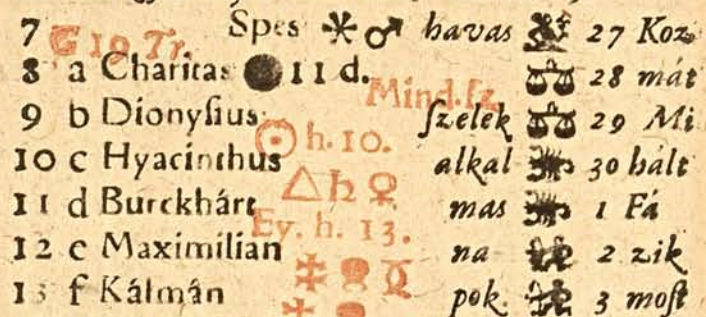 7 G 19. Tr. Spes havas 27 Koz
8 a Charitas 11 d. 28 mát
Mind. ſz
9 b Dionyſius ſzelek 29 Mi
☉ h. 10.
10 c Hyacinthus alkal 30 hált
△ ♄ ♀
11 d Burckhárt mas 1 Fá
Ey. h. 13.
12 e Maximilian na 2 zik
13 f Kálmán pok. 3 moſt